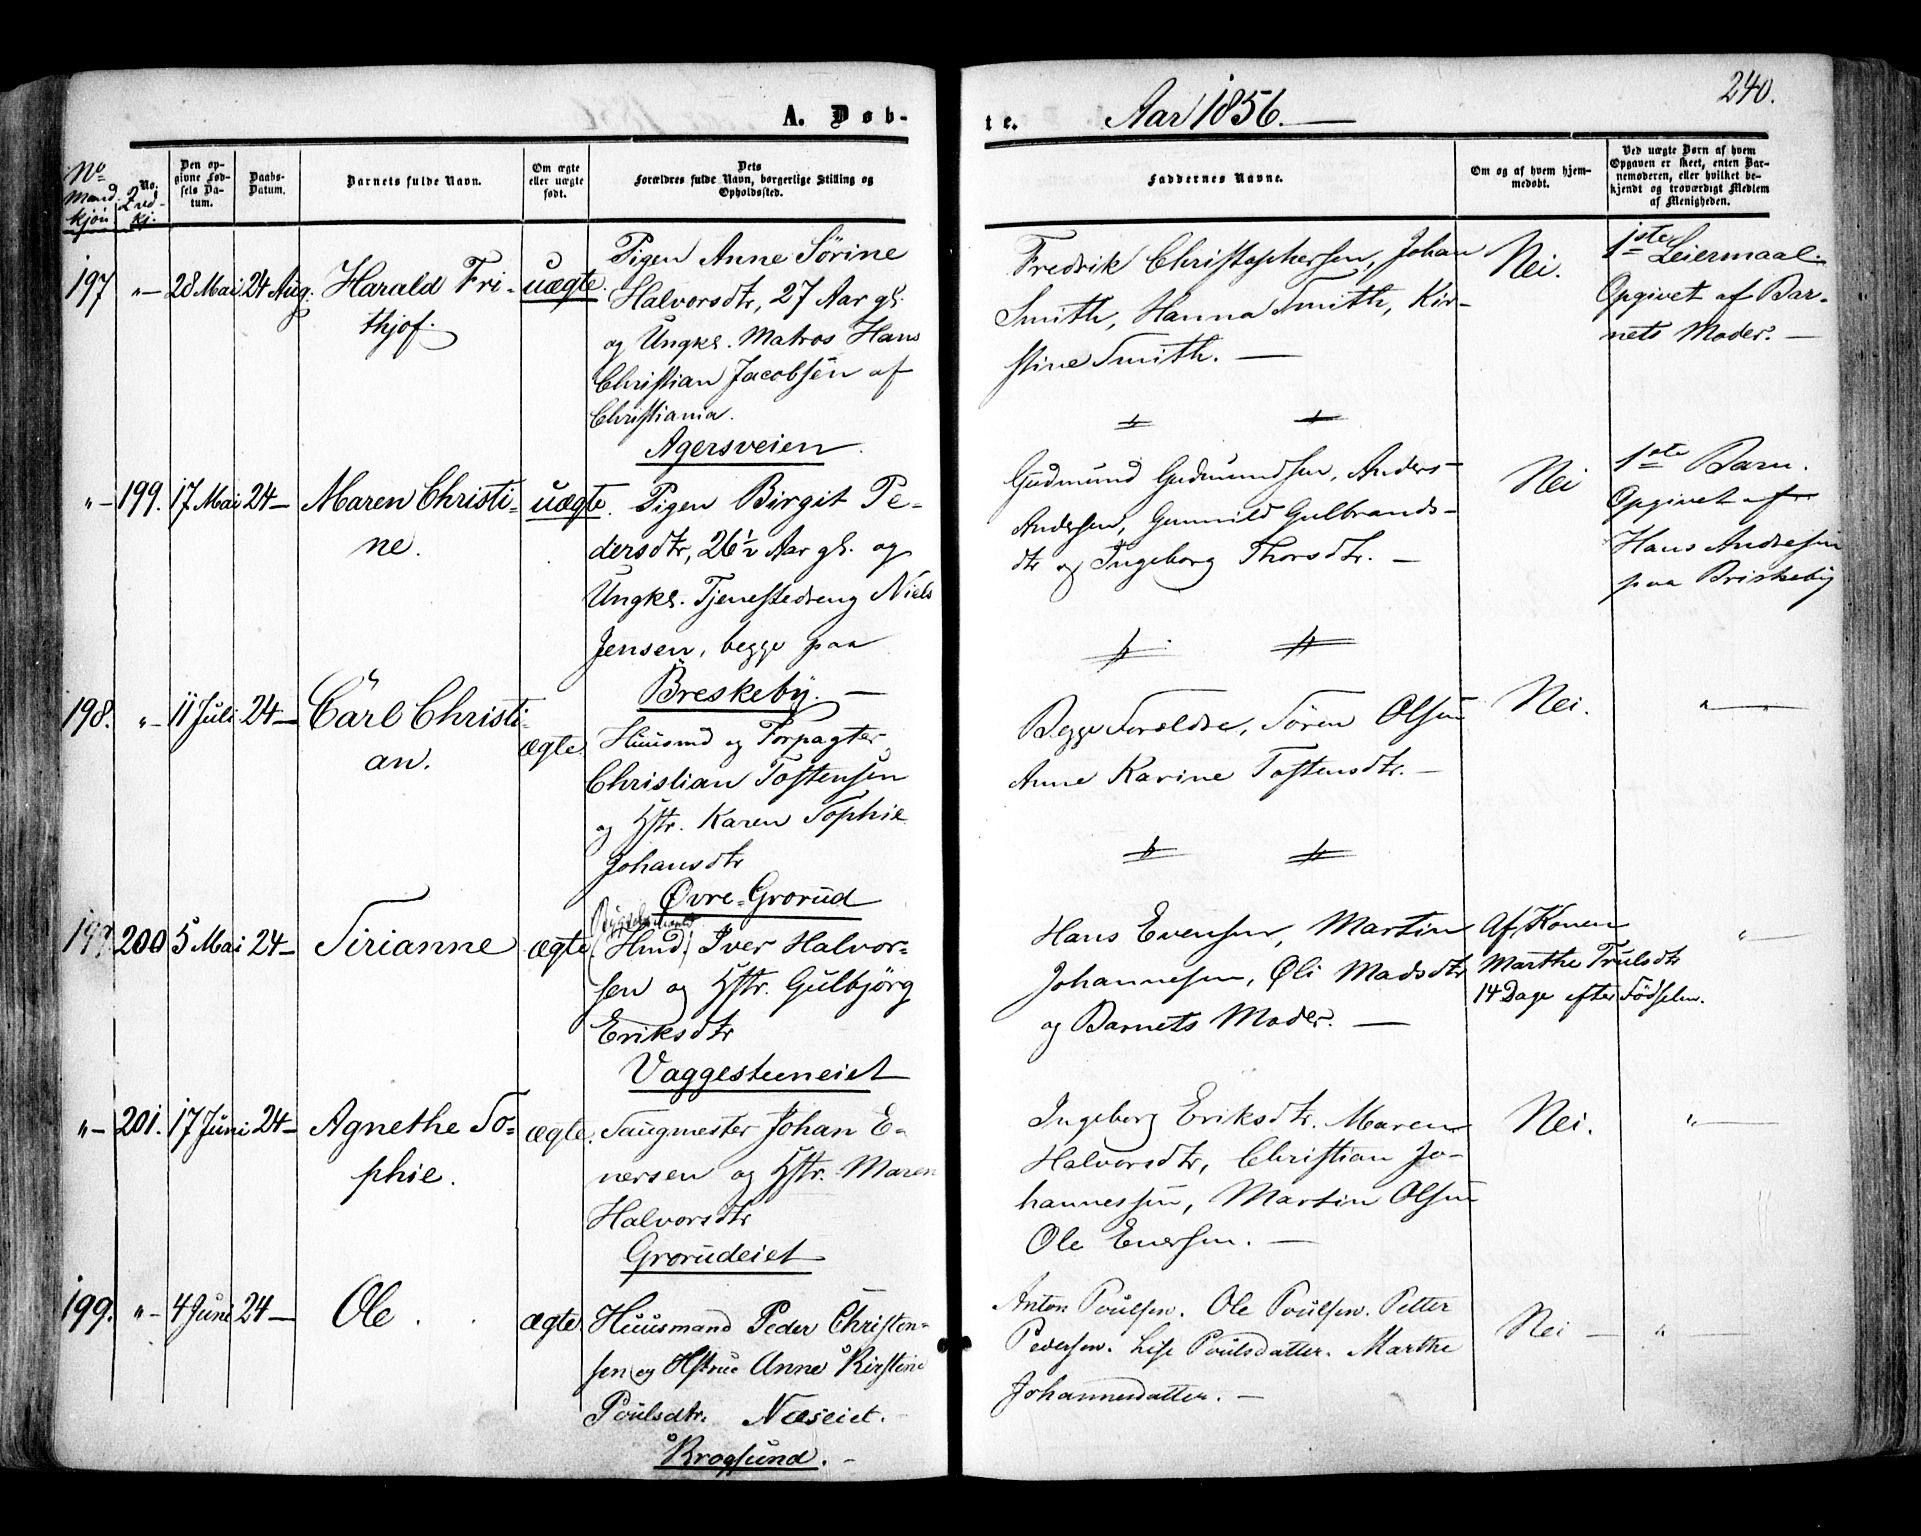 A. Døb-
te.
Aar 1856.
240.
No Mand kjön
No. Qvd-kj.
Den opgivne Fødsels Datum.
Daabs-Datum.
Barnets fulde Navn.
Om ægte eller uægte født.
Dets Forældres fulde Navn, borgerlige Stilling og Opholdssted.
Faddernes Navne.
Om og af hvem hjemmedøbt.
Ved uægte Børn af hvem Opgaven er skeet, enten Barnemoderen, eller hvilket bekjendt og troværdigt Medlem af Menigheden.
197 "— 28 Mai 24 Aug. Harald Fri-
thjof.
uægte.
Pigen Anne Sörine
Halvorsdtr, 27 Aar gl.
og Ungkl. Matros Hans
Christian Jacobsen af
Christiania.
Agersveien.
Fredrik Christophersen, Johan
Smith, Hanna Smith, Kir-
stine Smith. —
Nei.
1ste Leiermaal.
Opgivet af Bar-
nets Moder. —
"— 199. 17 Mai 24— Maren Christi-
ne.
uægte.
Pigen Birgit Pe-
dersdtr, 26½ Aar gl. og
Ungkl. Tjenestedreng Niels
Jensen, begge paa
Breskeby. —
Gudmund Gudmundsen, Anders
Andersen, Gunnild Gulbrands-
dtr og Ingeborg Thorsdtr. —
Nei
1ste Barn.
Opgivet af
Hans Andresen
paa Briskeby
198. "— 11 Juli 24— Carl Christi-
an.
ægte.
Huusmd og Forpagter
Christian Tostensen
og Hstr. Karen Sophie
Johansdtr
Øvre-Grorud
Begge Forældre, Sören Olsen
Anne Karine Tostensdtr. —
Nei.
"—"
200 5 Mai 24— Sirianne
ægte
(Hmd.) Iver Halvor-
sen og Hstr. Gulbjörg
Eriksdtr
Vaggesteneiet
Hans Evensen, Martin
Johannesen, Øli Madsdtr
og Barnets Moder. —
Af Konen
Marthe Trulsdtr
14 Dage efter Födselen.
"—
"— 201. 17 Juni 24— Agnethe So-
phie.
ægte.
Saugmester Johan E-
nersen og Hstr. Maren
Halvorsdtr
Grorudeiet
Ingeborg Eriksdtr. Maren
Halvorsdtr, Christian Jo-
hannessen, Martin Olsen
Ole Enersen. —
Nei.
"—
199. "— 4 Juni 24— Ole.
ægte.
Huusmand Peder Christen-
sen og Hstrue Anne Kirstine
Poulsdtr. Næseiet.
Krogsund. —
Anton Poulsen. Ole Poulsen. Petter
Pedersen. Lise Poulsdatter. Marthe
Johannesdatter. —
Nei —
"—